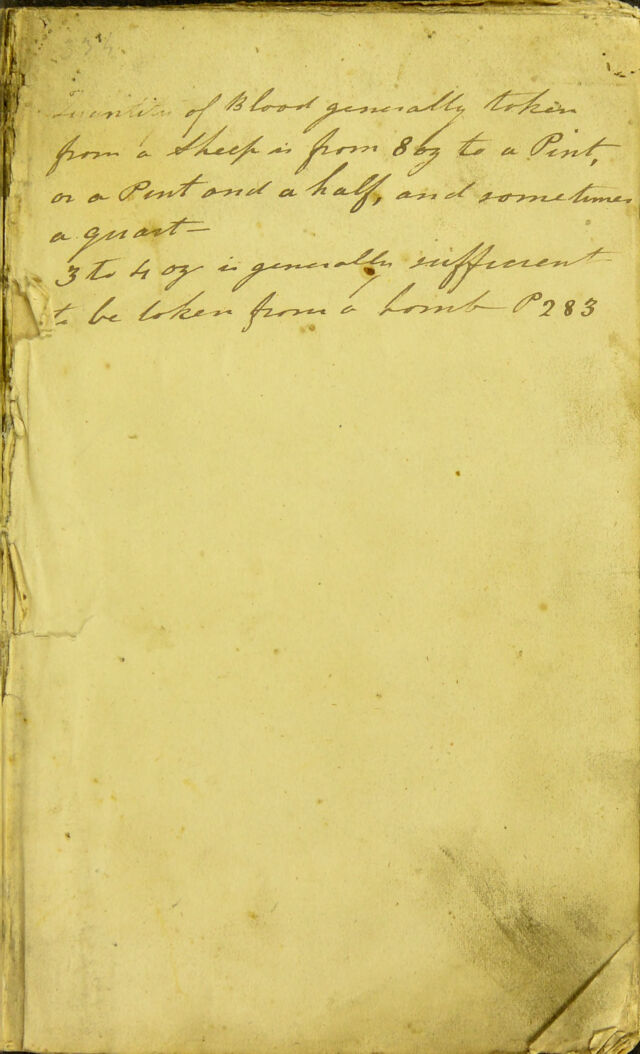 Quantity of Blood generally taken
from a Sheep is from 8 oz to a Pint,
or a Pint and a half, and sometimes
a quart—
3 to 4 oz is generally sufficient
to be taken from a Lamb P 283